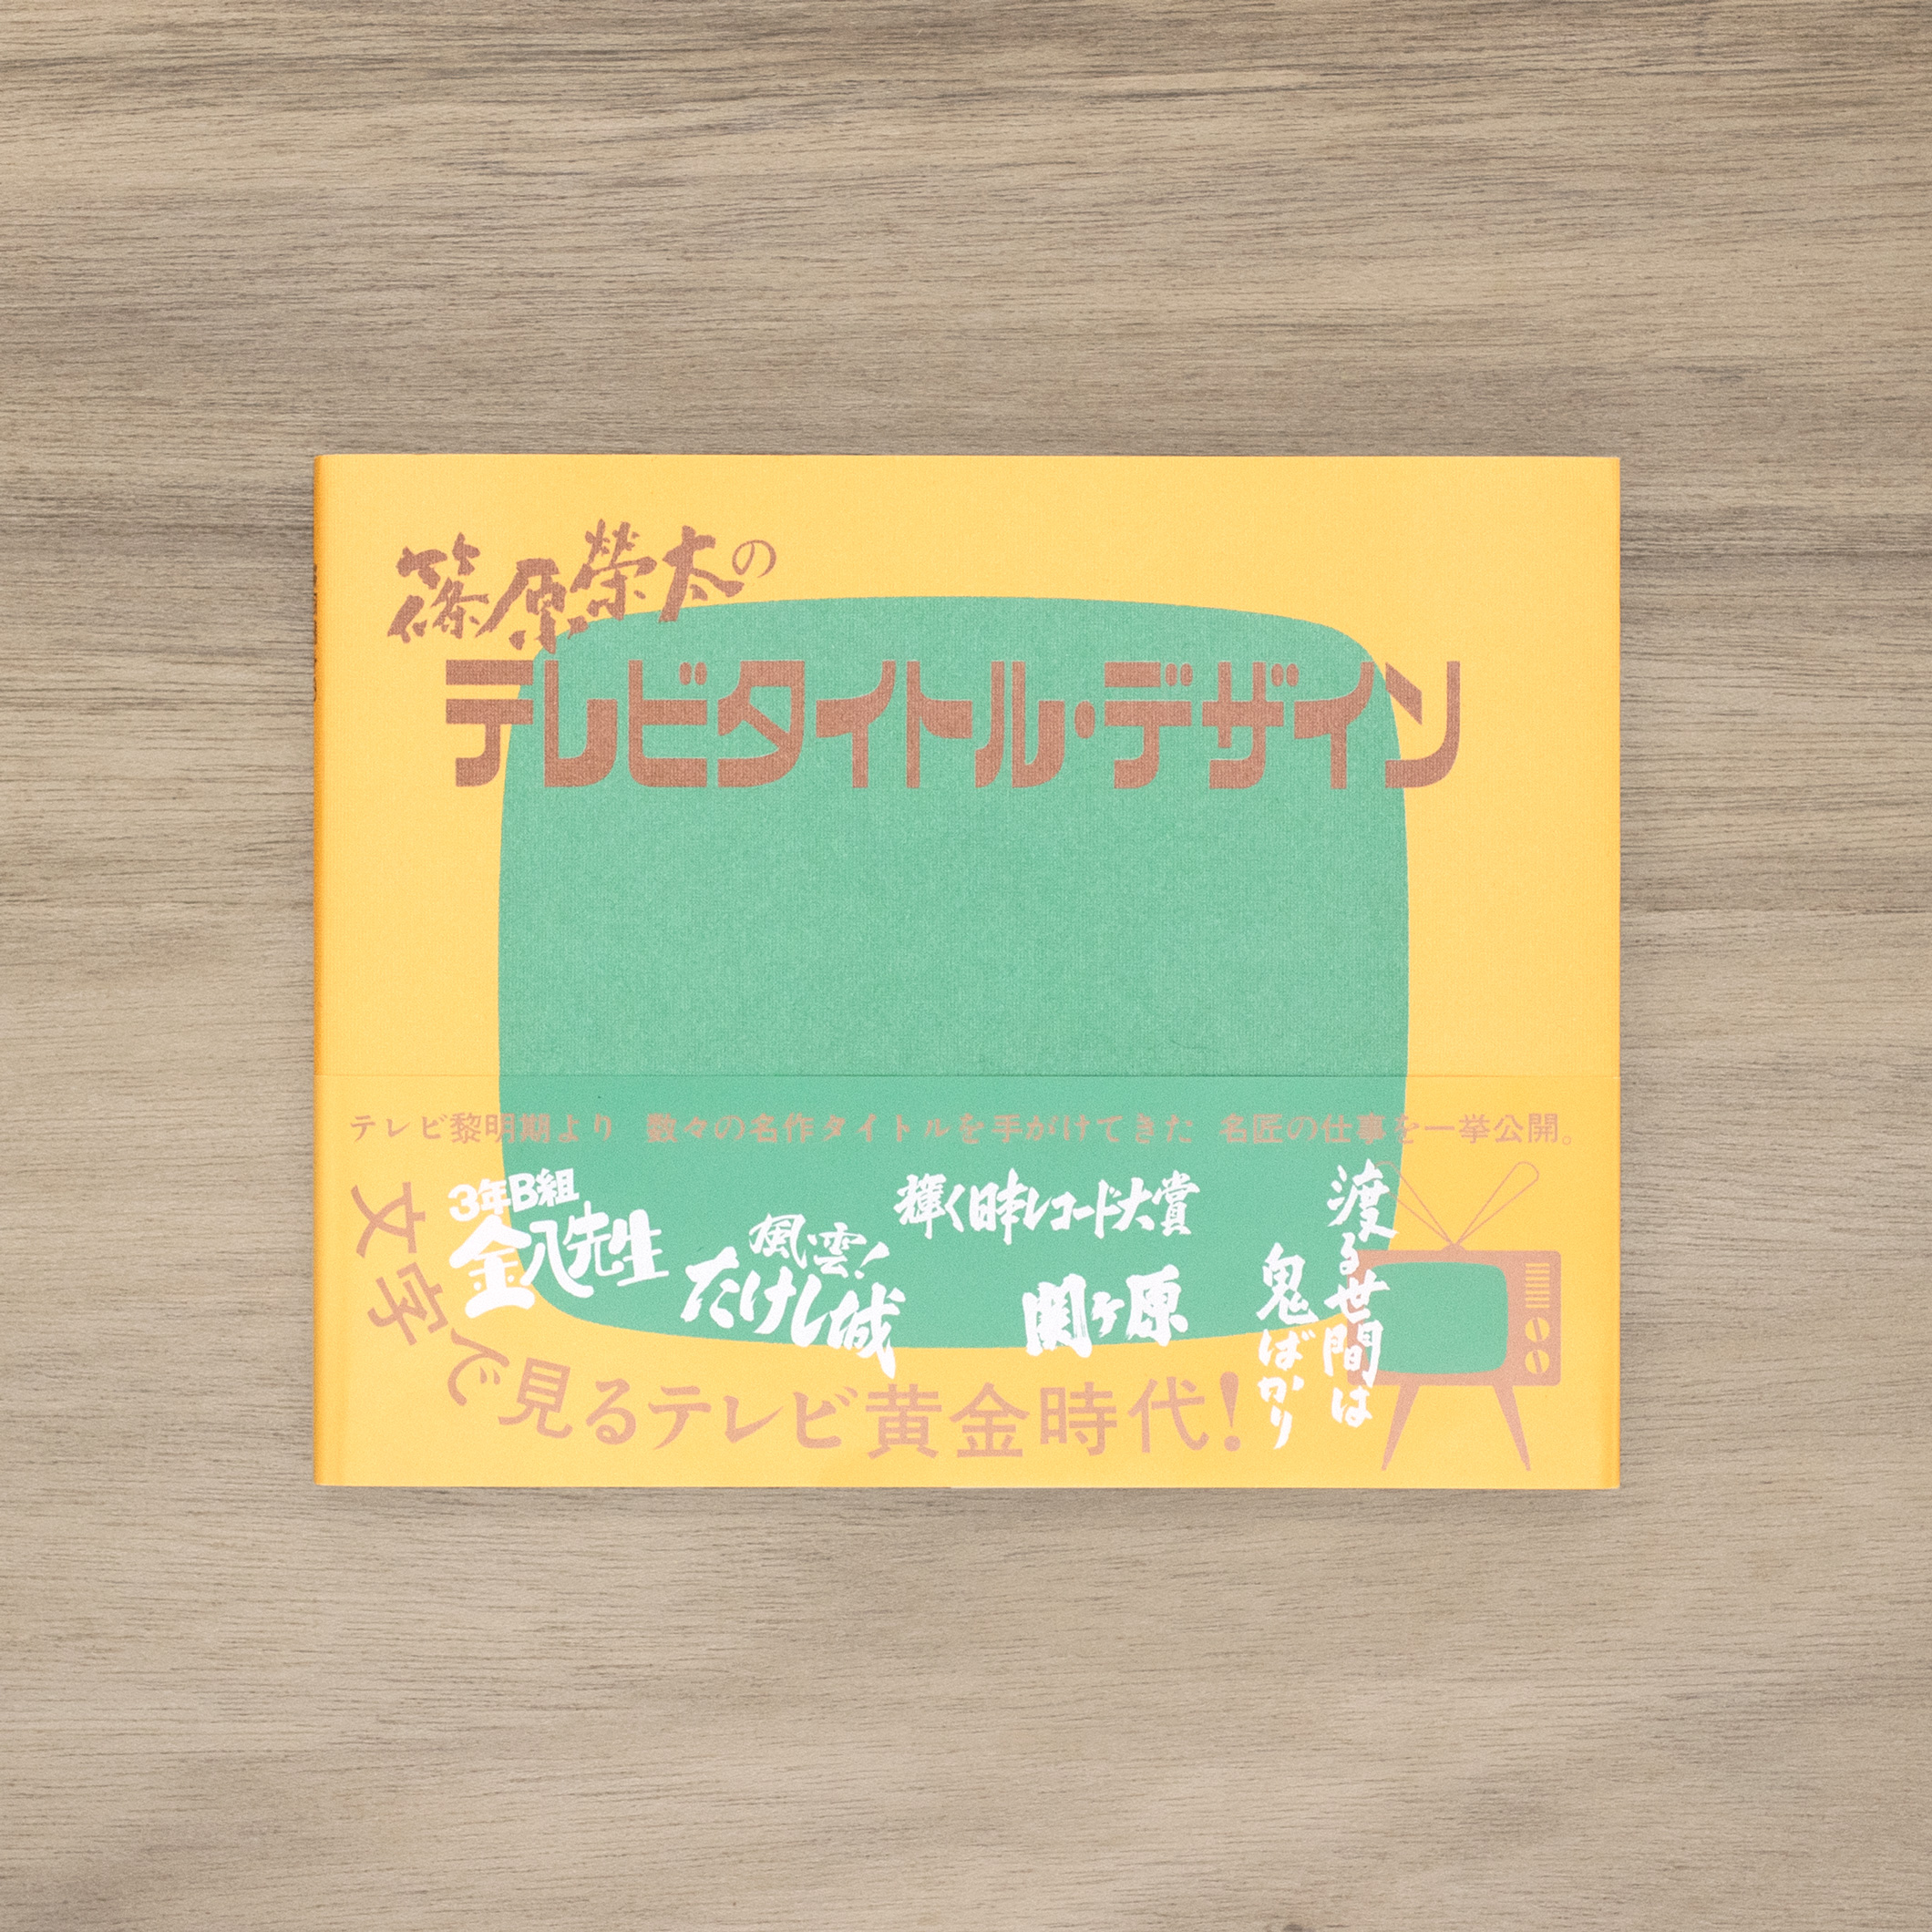 篠原榮太の
テレビタイトル・デザイン
テレビ黎明期より 数々の名作タイトルを手がけてきた 名匠の仕事を一挙公開。
3年B組
金八先生
風雲!
たけし城
輝く日本レコード大賞
関ヶ原
渡る世間は
鬼ばかり
文字で見るテレビ黄金時代!